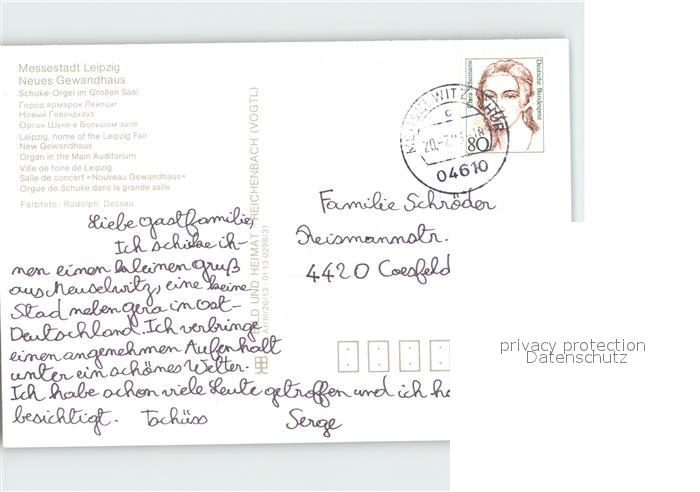 Messestadt Leipzig
Neues Gewandhaus
Schuke-Orgel im Großen Saal
Город ярмарок Лейпциг
Новый Гевандхауз
Орган Шуке в Большом зале
Leipzig, home of the Leipzig Fair
New Gewandhaus
Organ in the Main Auditorium
Ville de foire de Leipzig
Salle de concert «Nouveau Gewandhaus»
Orgue de Schuke dans la grande salle
Farbfoto: Rudolph, Dessau
Liebe gastfamilie,
Ich schicke ih-
nen einen kleinen gruß
aus Meuselwitz, eine keine
Stad neben gera in ost-
Deutschland. Ich verbringe
einen angenehmen Aufenhalt
unter ein schönes Welter.
Ich habe schon viele Leute getroffen und ich ha
besichtigt. Tschüss Serge
BILD UND HEIMAT REICHENBACH (VOGTL)
A1/III/26/13 0113 0298/31
Clara Schumann
Deutsche Bundespost
80
MEUSELWITZ, THÜR
c
04610
Familie Schröder
Reismannstr.
4420 Coesfeld
privacy protection
Datenschutz